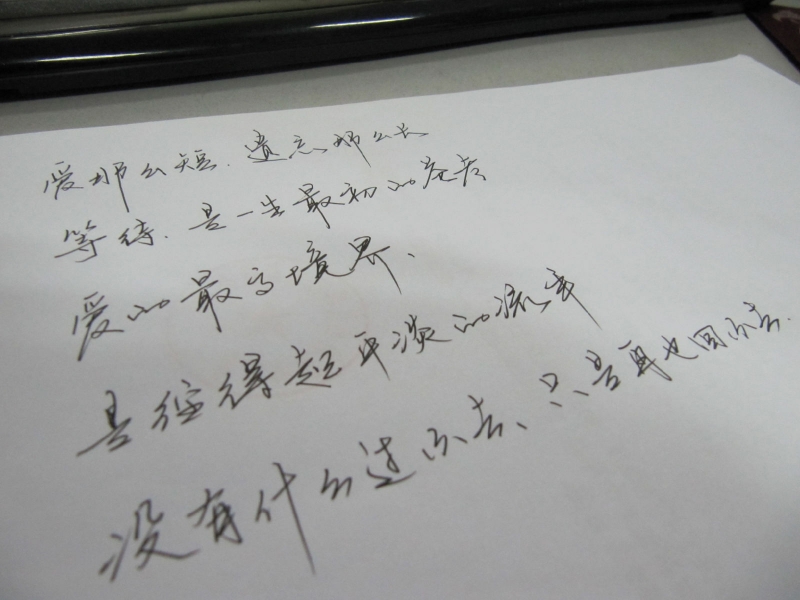 爱那么短.遗忘那么长
等待.是一生最初的苍老
爱的最高境界、
是经得起平淡的流年
没有什么过不去、只是再也回不去.